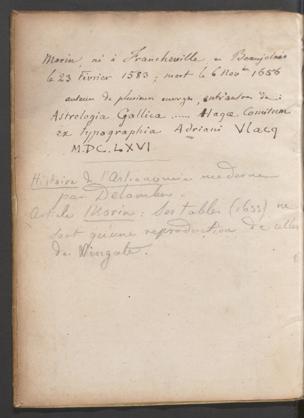 Morin, né à Francheville en Beaujolais
le 23 Février 1583 ; mort le 6 Novbre 1656
auteur de plusieurs ouvrages, entr'autres de :
Astrologia Gallica ..... Hagæ Comitum
ex typographia Adriani Vlacq
M.DC.LXVI
Histoire de l'Astronomie moderne
par Delambre.
Article Morin : Ses tables (1633) ne
sont qu'une reproduction de celles
de Wingate.